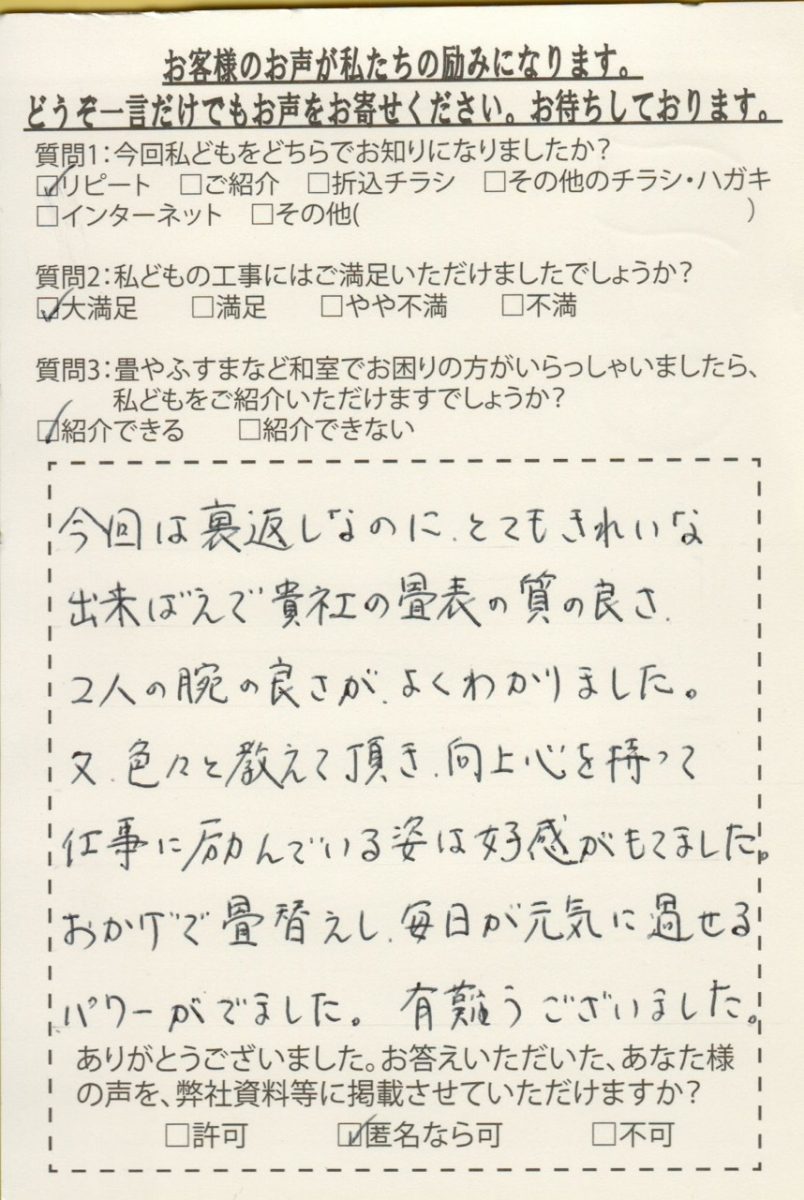 お客様のお声が私たちの励みになります。
どうぞ一言だけでもお声をお寄せください。お待ちしております。
質問1：今回私どもをどちらでお知りになりましたか？
☑リピート　□ご紹介　□折込チラシ　□その他のチラシ・ハガキ
□インターネット　□その他(　　　　　　　　　　　　　　　)
質問2：私どもの工事にはご満足いただけましたでしょうか？
☑大満足　　□満足　　□やや不満　　□不満
質問3：畳やふすまなど和室でお困りの方がいらっしゃいましたら、
私どもをご紹介いただけますでしょうか？
☑紹介できる　　□紹介できない
今回は裏返しなのに、とてもきれいな
出来ばえで貴社の畳表の質の良さ、
2人の腕の良さが、よくわかりました。
又、色々と教えて頂き、向上心を持って
仕事に励んでいる姿は好感がもてました。
おかげで畳替えし、毎日が元気に過せる
パワーがでました。 有難うございました。
ありがとうございました。お答えいただいた、あなた様
の声を、弊社資料等に掲載させていただけますか？
□許可　　　☑匿名なら可　　　□不可